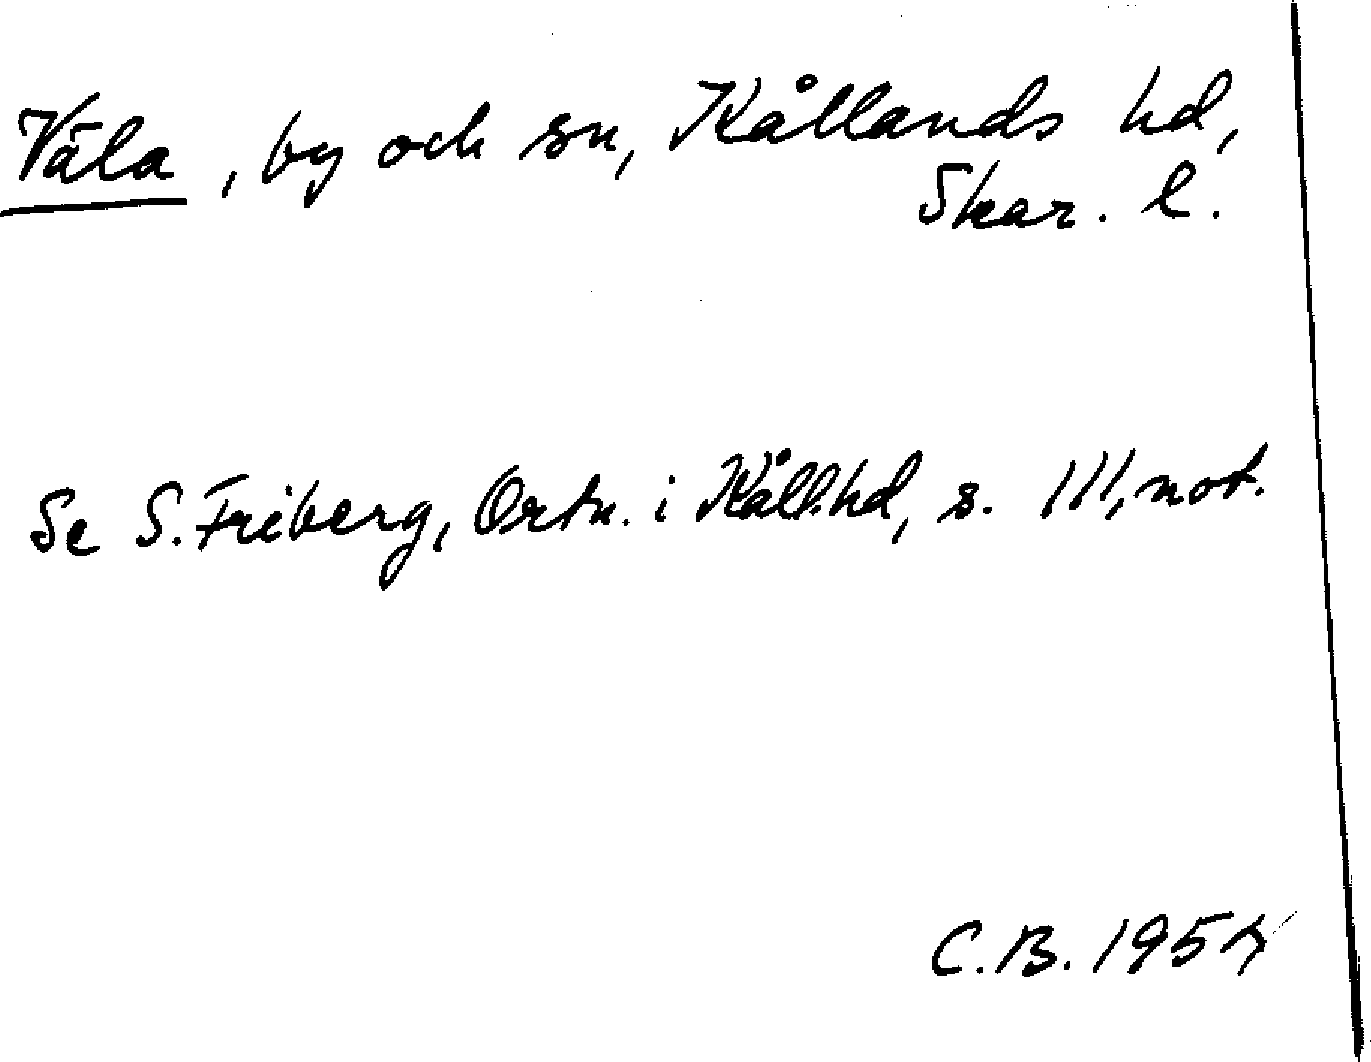 Väla, by och sn, Kållands hd,
Skar. l.
Se S. Friberg, Ortn. i Kåll.hd, s. 111, not.
C.B. 1954